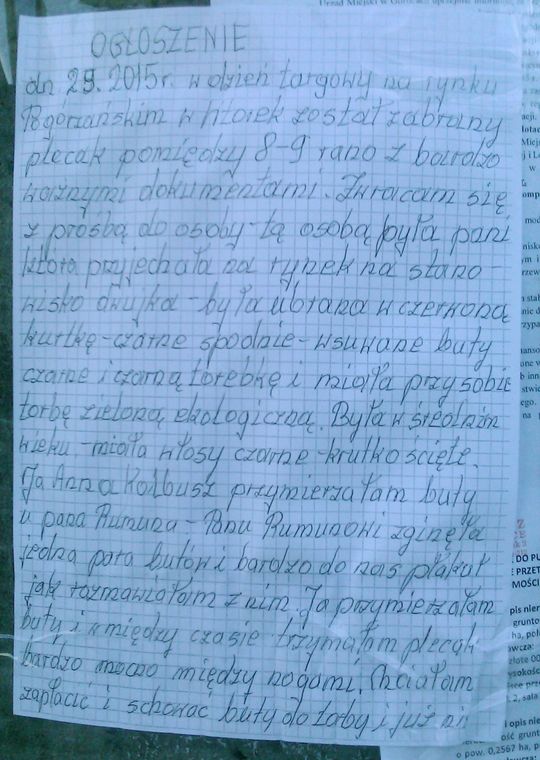 OGŁOSZENIE
dn. 29. 2015r. w dzień targowy na rynku
Pogórzańskim wtorek został zabrany
plecak pomiędzy 8-9 rano z bardzo
ważnymi dokumentami. Zwracam się
z prośbą do osoby-tą osobą była pani
która przyjechała na rynek na stano-
wisko dwójka - była ubrana w czerwoną
kurtkę-czarne spodnie-wsuwane buty
czarne i czarną torebkę i miała przy sobie
torbę zieloną ekologiczną. Była w średnim
wieku.-miała włosy czarne-krutko ścięte.
Ja Anna Kołbusz przymierzałam buty
u pana Rumuna - Panu Rumunowi zginęła
jedna para butów i bardzo do nas płakał
jak rozmawiałam z nim. Ja przymierzałam
buty i w między czasie trzymałam plecak
bardzo mocno między nogami. Chciałam
zapłacić i schować buty do torby i już ni
Urząd Miejski w
DO PU
E PRZET
MOŚCI
opis nier
grunto
ha, poło
złote 00
wysokość
2, sala
i opis nie
ość grunt
o pow. 0,2567 ha, p